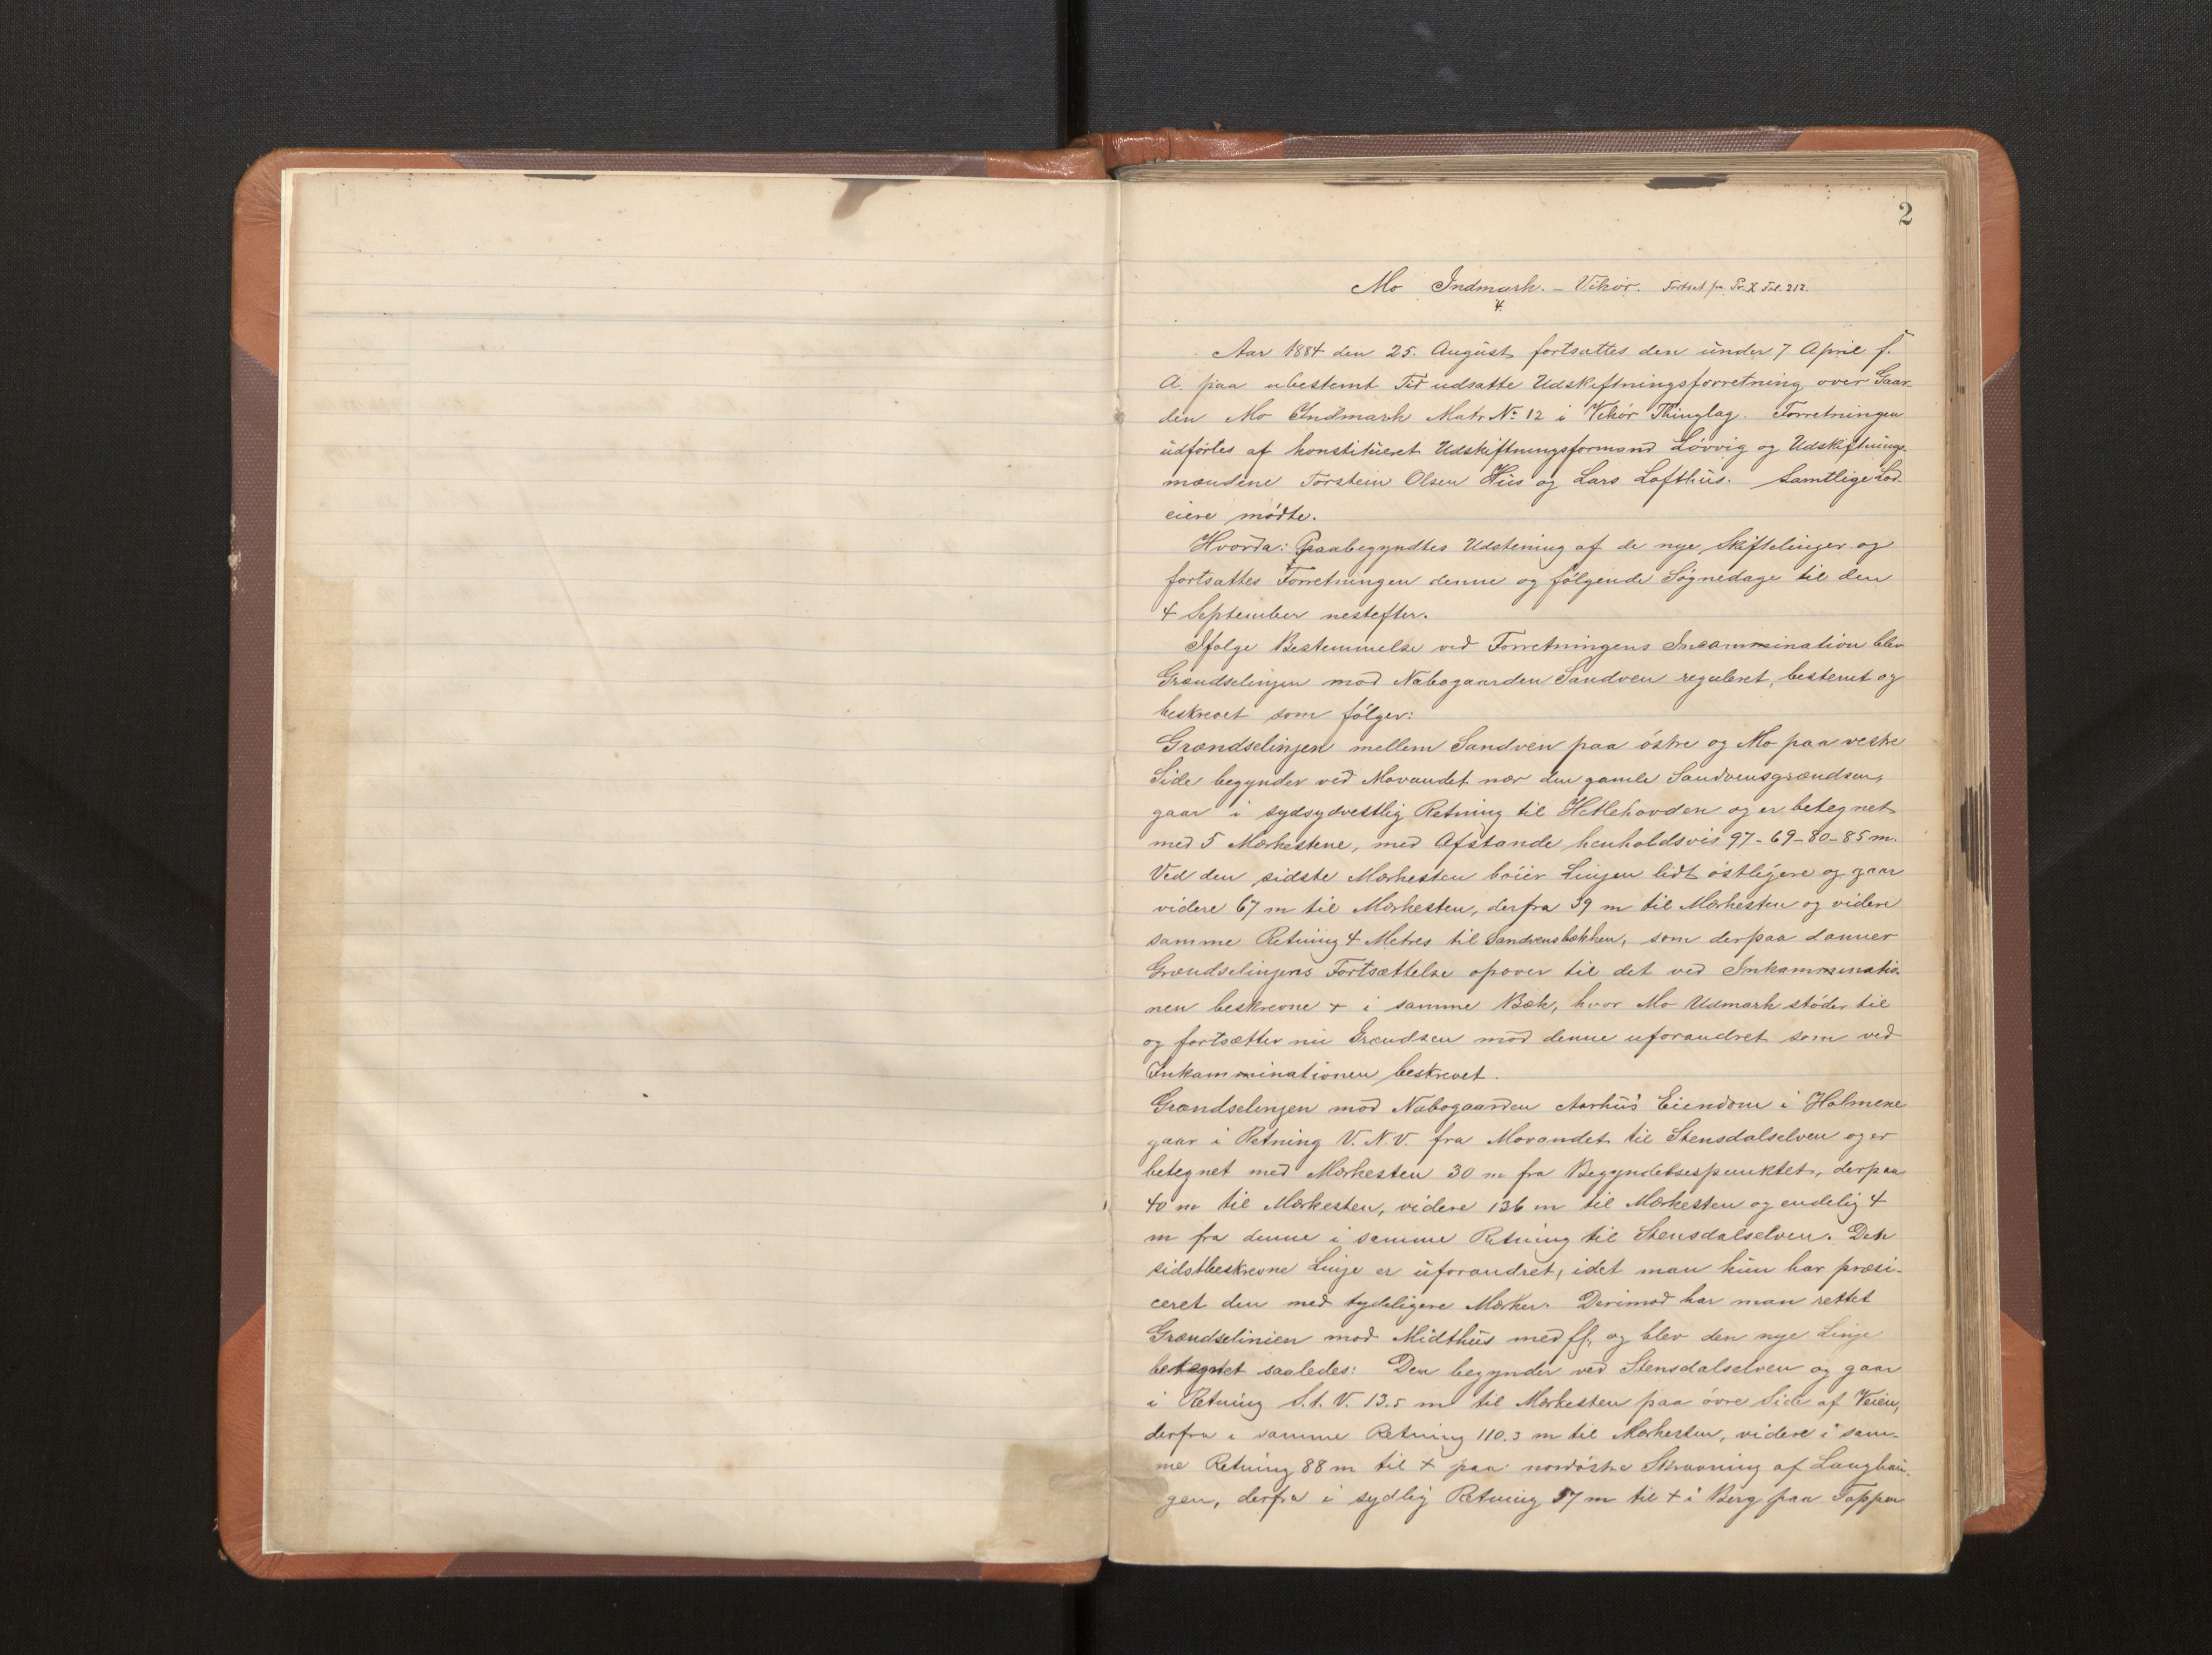 2
Mo Indmark. - Vikør. Fortsat fra Pr. X Fol. 212.
4.
Aar 1884 den 25. August fortsattes den under 7 April f.
A. paa ubestemt Tid udsatte Udskiftningsforretning over Gaar-
den Mo Indmark Matr. No 12 i Vikør Thinglag. Forretningen
udførtes af konstitueret Udskiftningsformand Løvvig og Udskiftnings-
mændene Torstein Olsen Hus og Lars Lofthus. Samtlige Lod-
eiere mødte.
Hvorda: Paabegyndtes Udstening af de nye Skiftelinjer og
fortsattes Forretningen denne og følgende Søgnedage til den
4 September nestefter.
Ifølge Bestemmelse ved Forretningens Incammination blev
Grændselinjen mod Nabogaarden Sandven reguleret, bestemt og
beskrevet som følger:
Grændselinjen mellem Sandven paa østre og Mo paa vestre
Side begynder ved Movandet nær den gamle Sandvensgrændsen,
gaar i sydsydvestlig Retning til Hetlehovden og er betegnet
med 5 Mærkestene, med Afstande henholdsvis 97-69-80-85 m.
Ved den sidste Mærkesten bøier Linjen lidt østligere og gaar
videre 67 m til Mærkesten, derfra 39 m til Mærkesten og videre
samme Retning 4 Metres til Sandvensbækken, som derpaa danner
Grændselinjens Fortsættelse opover til det ved Inkamminatio-
nen beskrevne + i samme Bæk, hvor Mo Udmark støder til
og fortsætter nu Grændsen mod denne uforandret som ved
Inkamminationen beskrevet.
Grændselinjen mod Nabogaarden Aarhus' Eiendom i Holmene
gaar i Retning V.N.V. fra Movandet til Stensdalselven og er
betegnet med Mærkesten 30 m fra Begyndelsespunktet, derpaa
40 m til Mærkesten, videre 136 m til Mærkesten og endelig 4
m fra denne i samme Retning til Stensdalselven. Den
sidstbeskrevne Linje er uforandret, idet man kun har præsi-
ceret den med tydeligere Mærker. Derimod har man rettet
Grændselinien mod Midthus med ff, og blev den nye Linje
betegnet saaledes: Den begynder ved Stensdalselven og gaar
i Retning S.S.V. 13.5 m til Mærkesten paa øvre Side af Veien,
derfra i samme Retning 110.3 m til Mærkesten, videre i sam-
me Retning 88 m til + paa nordøstre Skraaning af Langhau-
gen, derfra i sydlig Retning 57 m til + i Berg paa Toppen